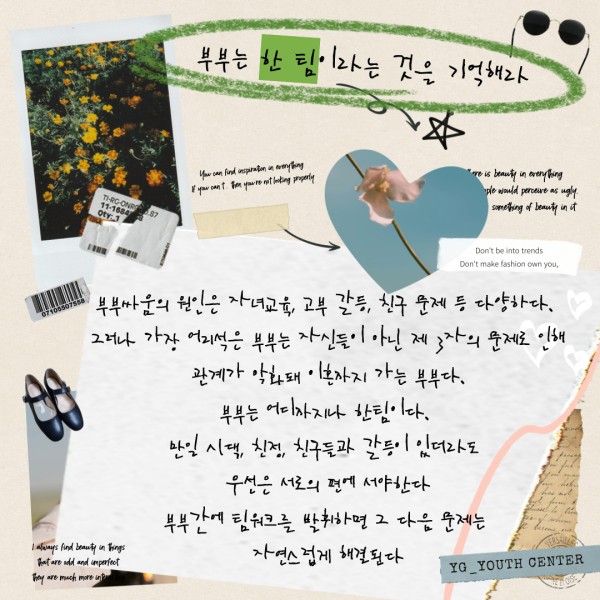 부부는 한 팀이라는 것을 기억해라
You can find inspiration in everything
If you can't, then you're not looking properly
There is beauty in everything
people would perceive as ugly.
something of beauty in it
TI-RG-ONRG
Qty:
Don't be into trends
Don't make fashion own you,
07105507558
부부싸움의 원인은 자녀교육, 고부 갈등, 친구 문제 등 다양하다.
그러나 가장 어리석은 부부는 자신들이 아닌 제 3자의 문제로 인해
관계가 악화돼 이혼까지 가는 부부다.
부부는 어디까지나 한팀이다.
만일 시댁, 친정, 친구들과 갈등이 있더라도
우선은 서로의 편에 서야한다
부부간에 팀워크를 발휘하면 그 다음 문제는
자연스럽게 해결된다
I always find beauty in things
that are odd and imperfect
they are much more
YG_YOUTH CENTER